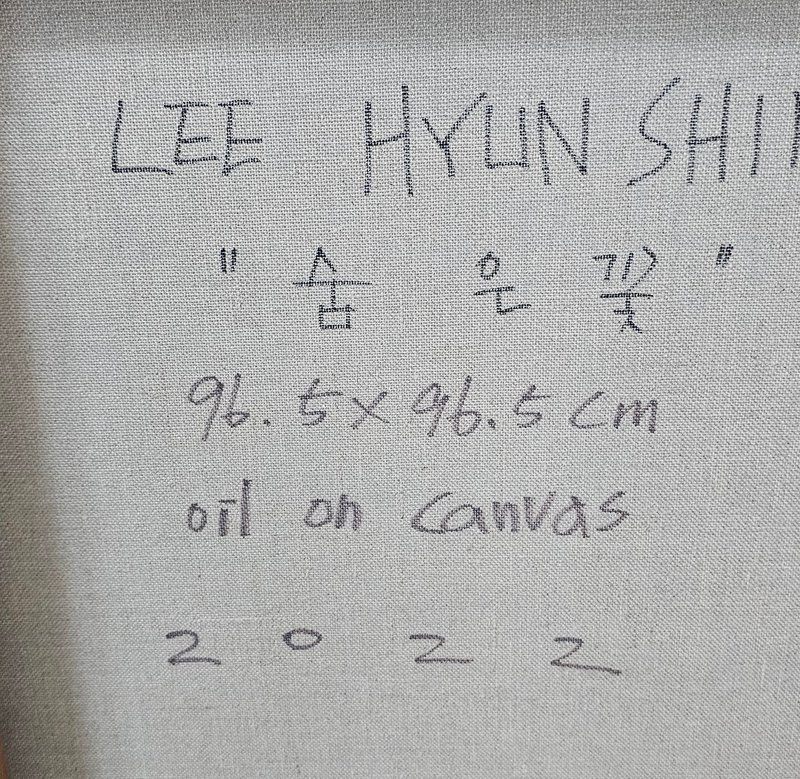 LEE HYUN SHI
"숨 은 꽃"
96.5 x 96.5 cm
oil on canvas
2022